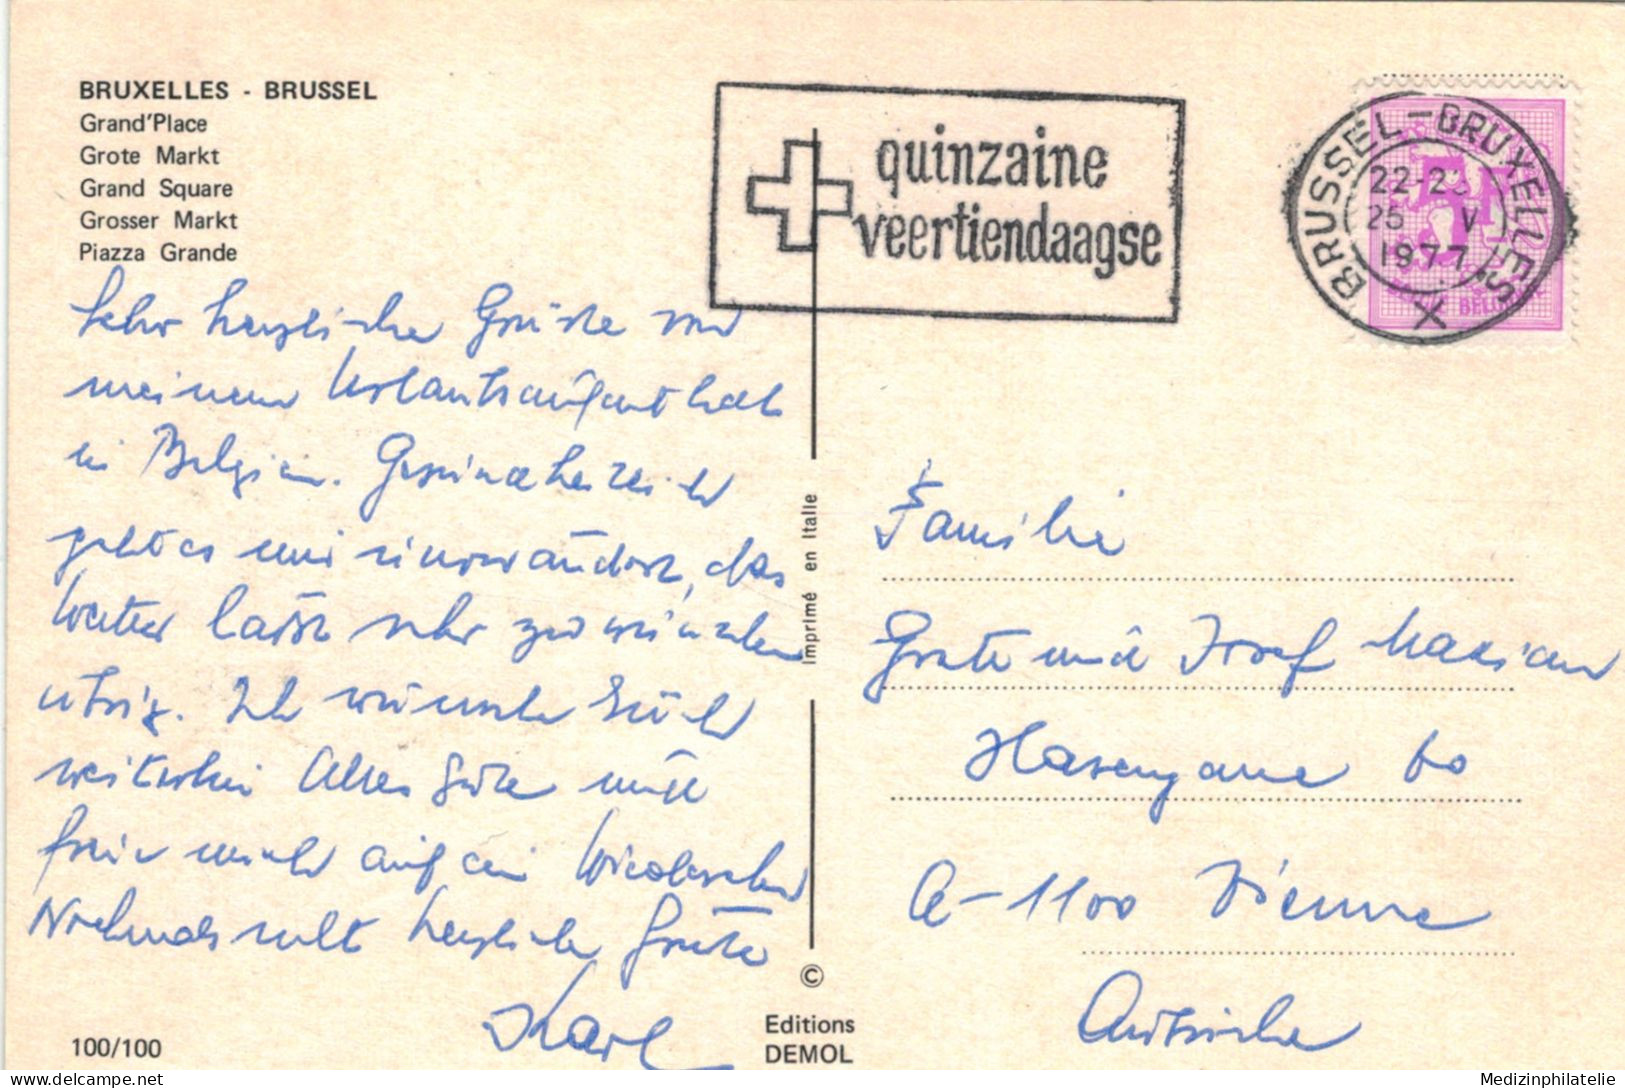 BRUXELLES - BRUSSEL
Grand'Place
Grote Markt
Grand Square
Grosser Markt
Piazza Grande
quinzaine
veertiendaagse
BRUSSEL-BRUXELLES
22-2
25 V
1977
X
Sehr herzliche Grüsse von
meinem Urlaubsaufenthalt
in Belgien. Gesundheitlich
geht es mir einwandfrei, das
Wetter lässt sehr zu wünschen
übrig. Ich wünsche Euch
weiterhin Alles Gute und
freue mich auf ein Wiedersehen
Nochmals recht herzliche Grüsse
Karl
Imprimé en Italie
Familie
Grete und Josef Maxian
Hasengasse 60
A-1100 Vienne
Autriche
100/100
©
Editions
DEMOL
delcampe.net
Medizinphilatelie